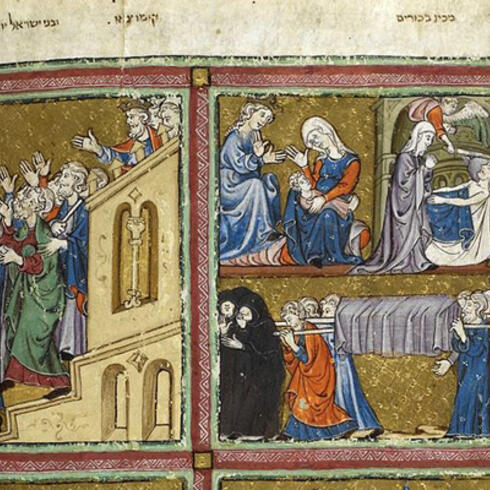 מכת בכורים
קומו צאו
ובני ישראל